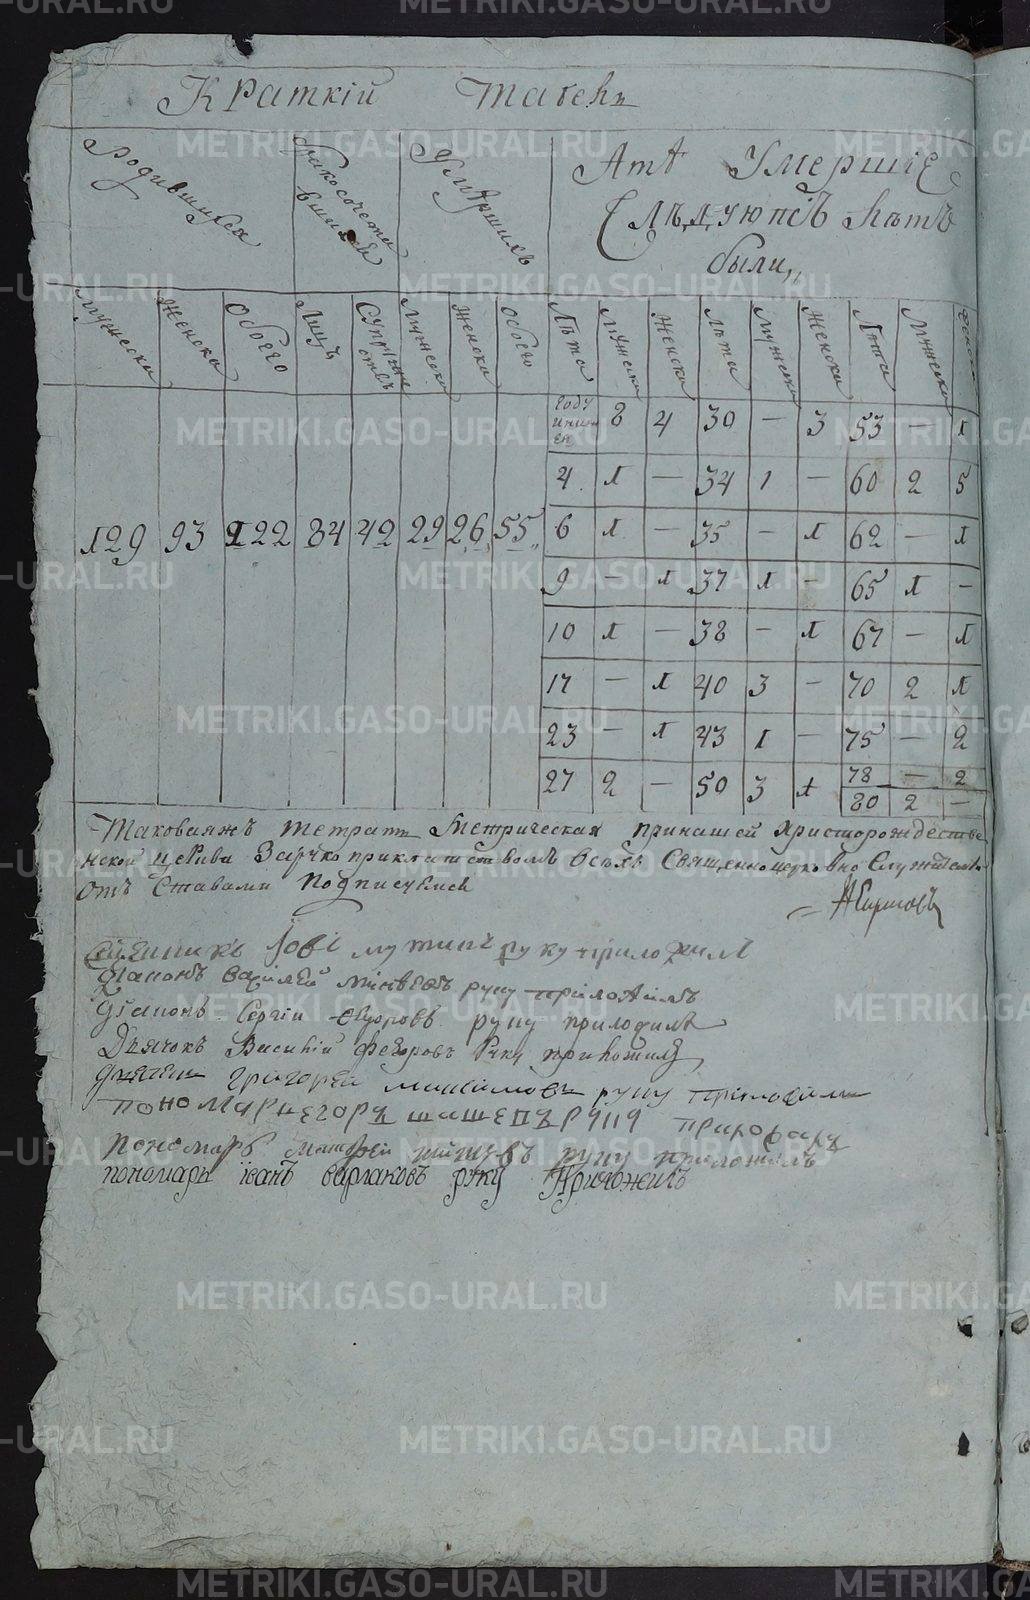 METRIKI.GASO-URAL.RU
Краткiй Табель
Родившихся
Бракосочета
вшихся
Умершихъ
Умершiе
Слѣдующiхъ лѣтъ
были,,
Мужеска Женска Обоего Лицъ Супружествъ Мужеска Женска Обоего Лѣта Мужеска Женска Лѣта Мужеска Женска Лѣта Мужеска Женска
году 8 4 30 — 3 53 — 1
4 1 — 34 1 — 60 2 5
129 93 222 84 42 29 26 55
6 1 — 35 — 1 62 — 1
9 — 1 37 1 — 65 1 —
10 1 — 38 — 1 67 — 1
17 — 1 40 3 — 70 2 1
23 — 1 43 1 — 75 — 2
27 2 — 50 3 1 78 — 2
80 2 —
Таковаяжъ тетрать Метрическая принашей Христорождестве
нской церкви Заручкоприкладствомъ Всехъ Священноцерковно Служителей
Отъ Ставами подписуемся
iовъ руку приложилъ
Дiаконъ Василей руку приложилъ
Дiаконъ Сергiй Ѳедоровъ руку приложилъ
Дьячокъ Василiй Федоровъ Руку приложилъ
Григорей Максимовъ руку приложилъ
пономарь Егоръ
Пономарь Матфей руку приложилъ
пономарь iванъ варлаковъ руку Приложилъ